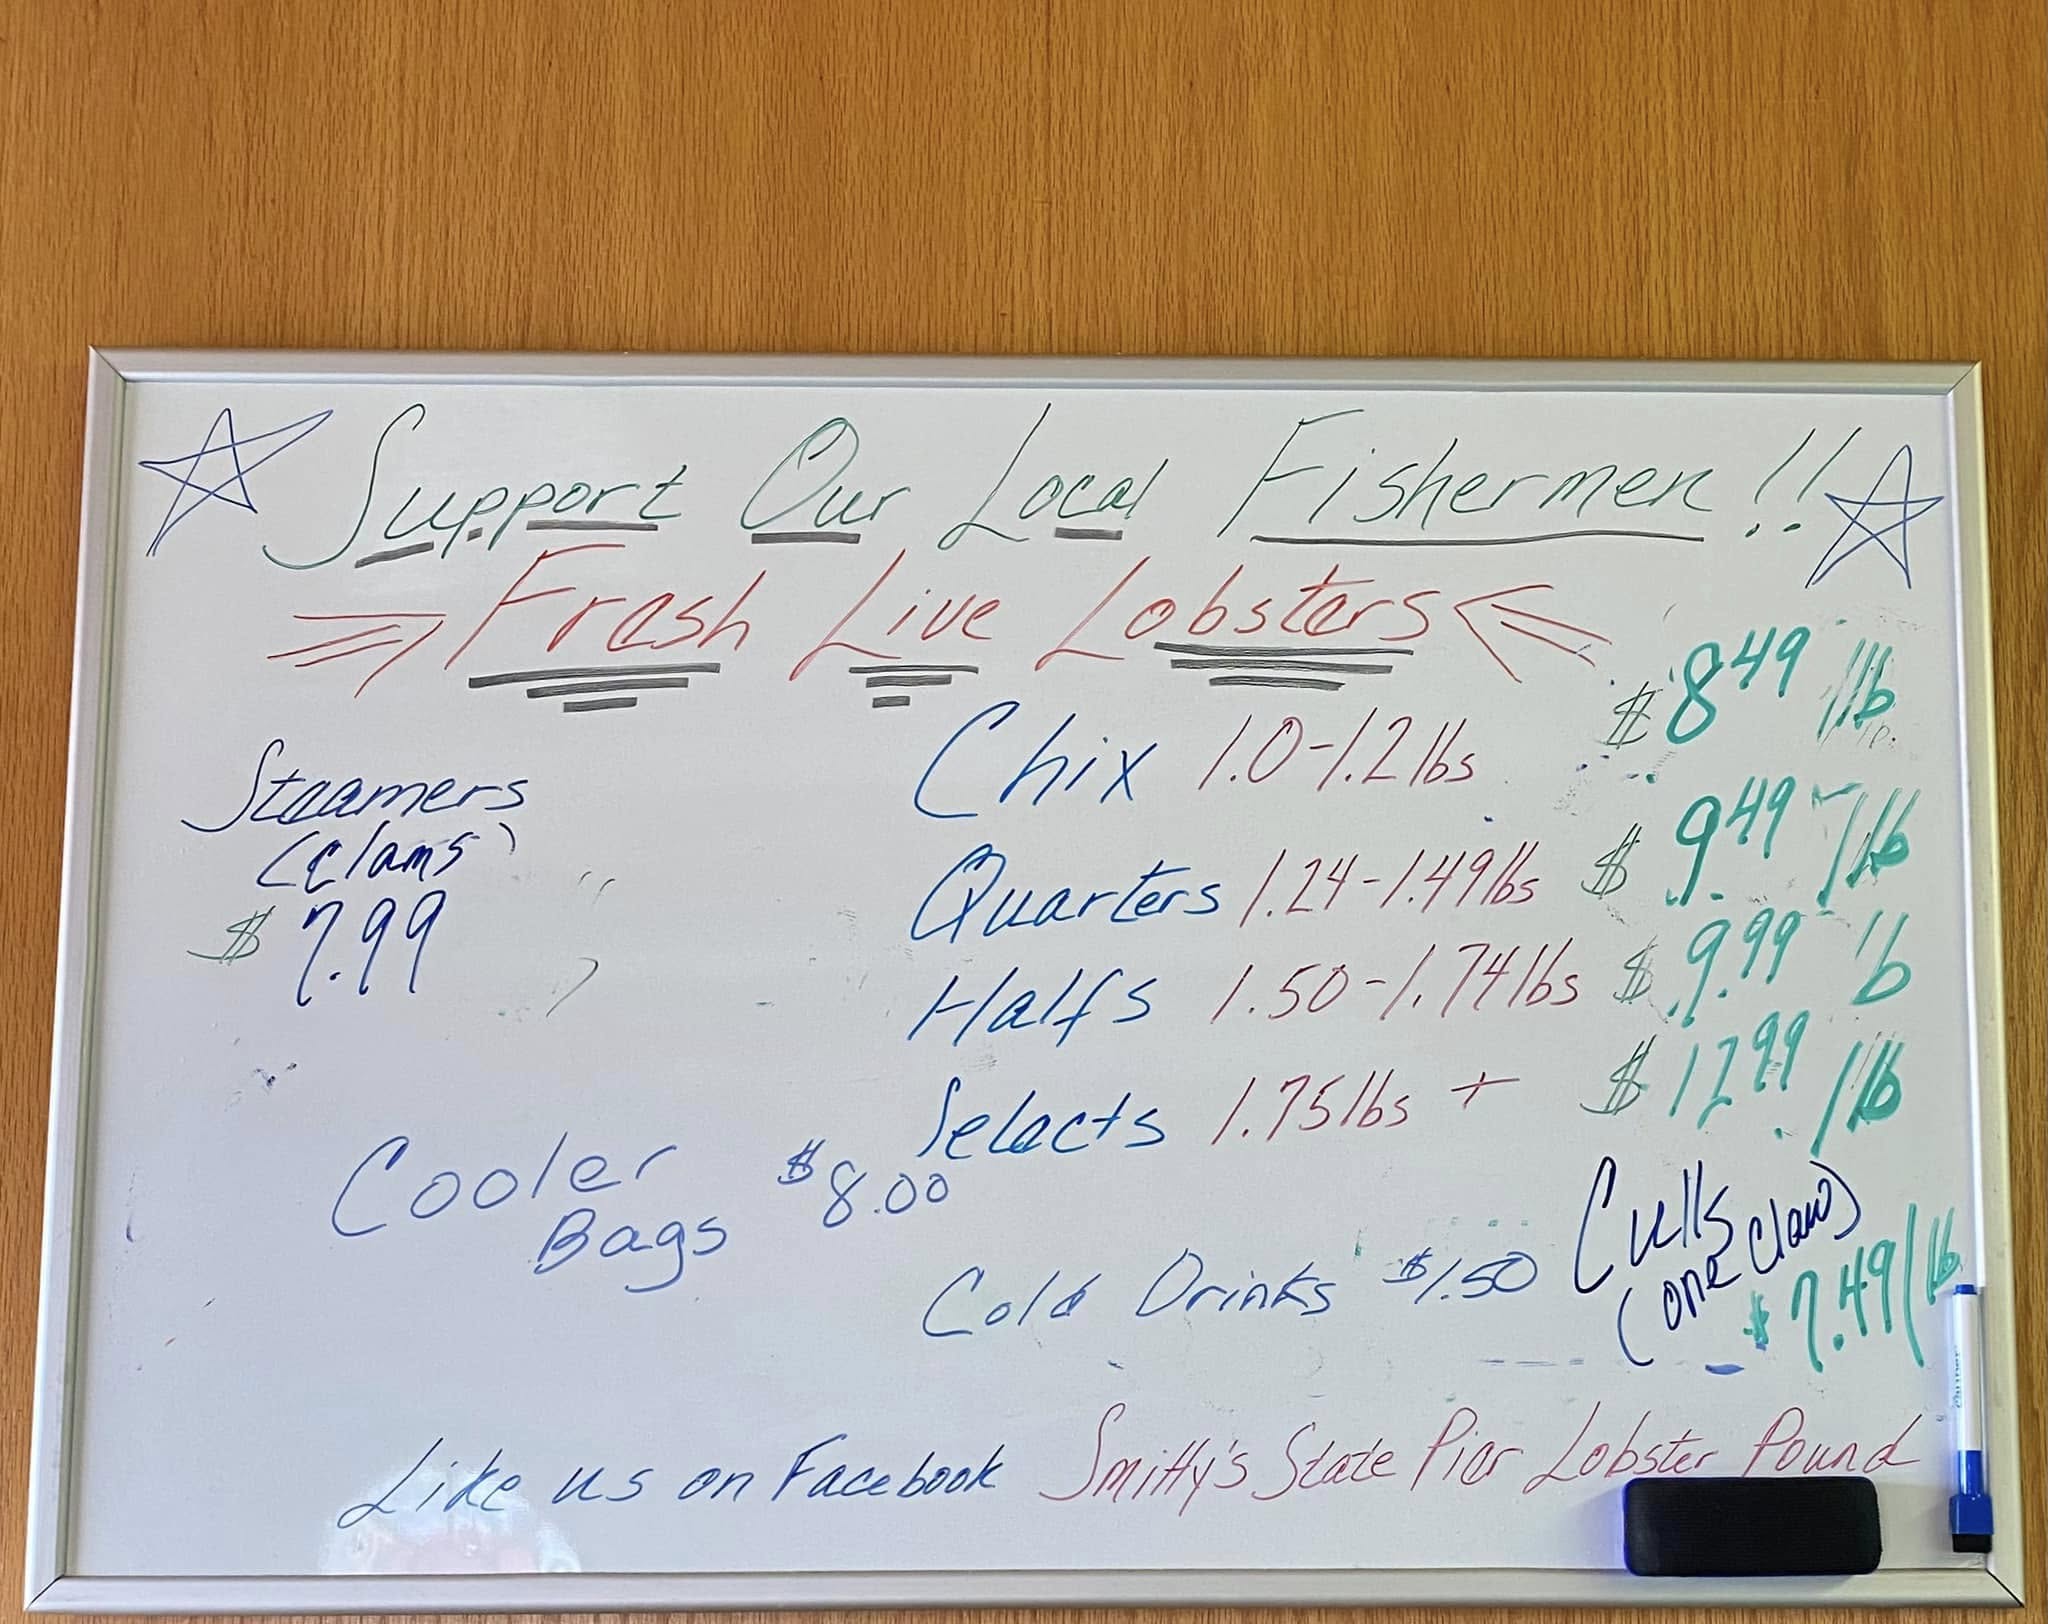 Support Our Local Fishermen!!
⇒ Fresh Live Lobsters ⇐
Steamers
(clams)
$ 7.99
Chix 1.0-1.2 lbs $ 8.49 /lb
Quarters 1.24-1.49 lbs $ 9.49 /lb
Halfs 1.50-1.74 lbs $ 9.99 lb
Selects 1.75 lbs + $ 12.99 /lb
Cooler
Bags $8.00
Culls
(one claw)
$7.49/lb
Cold Drinks $1.50
Like us on Facebook Smitty's State Pier Lobster Pound